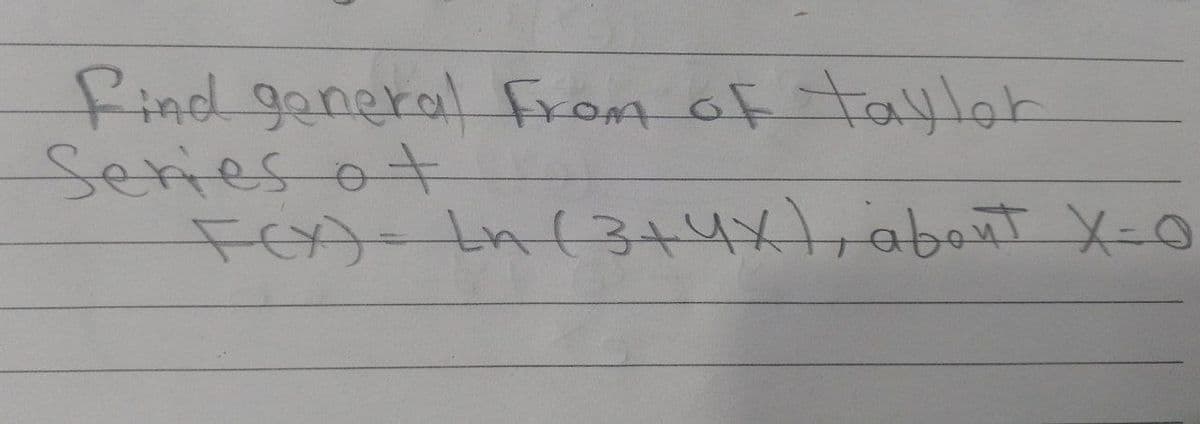 Find general From of taylor
Series of
F(X) = Ln (3+4X), about X=0